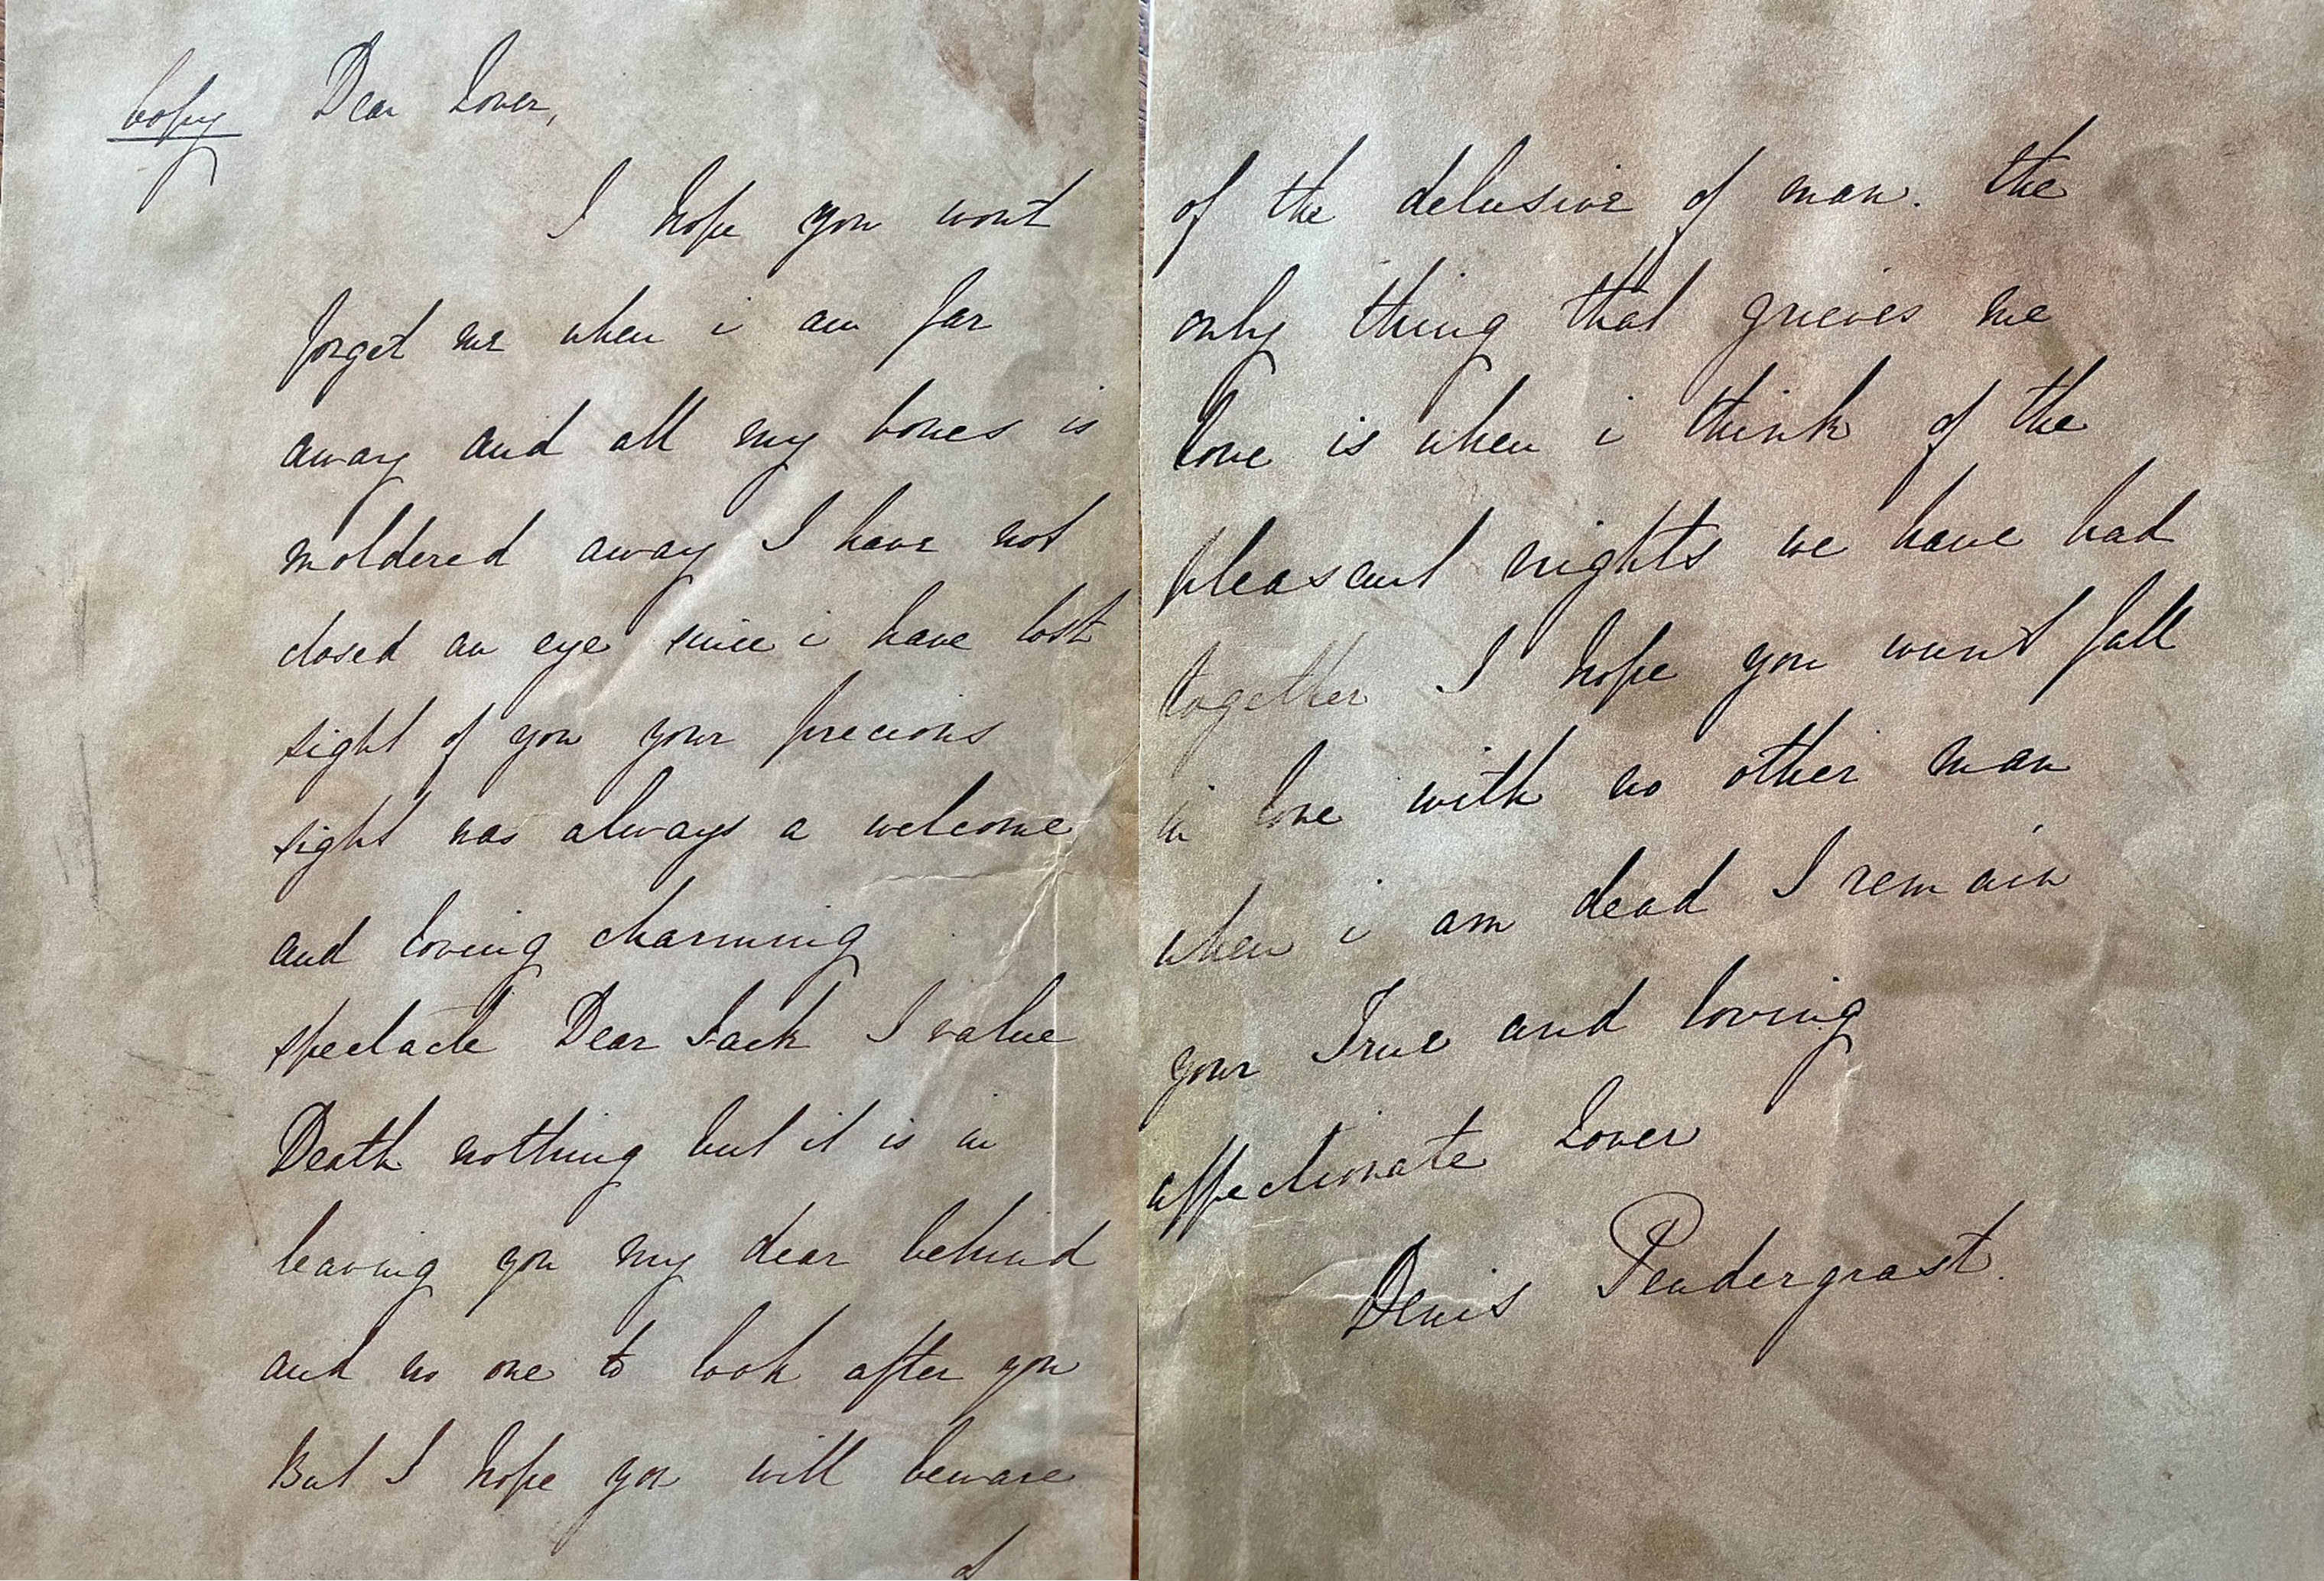 Copy Dear Lover,
I hope you wont
forget me when i am far
away and all my bones is
moldered away I have not
closed an eye since i have lost
sight of you your precious
sight was always a welcome
and loving charming
spectacle Dear Jack I value
Death nothing but it is in
leaving you my dear behind
and no one to look after you
But I hope you will beware
of
of the delusive of man. the
only thing that grieves me
love is when i think of the
pleasant nights we have had
together I hope you wont fall
in love with no other man
when i am dead I remain
your True and loving
affectionate Lover
Denis Pendergrast.